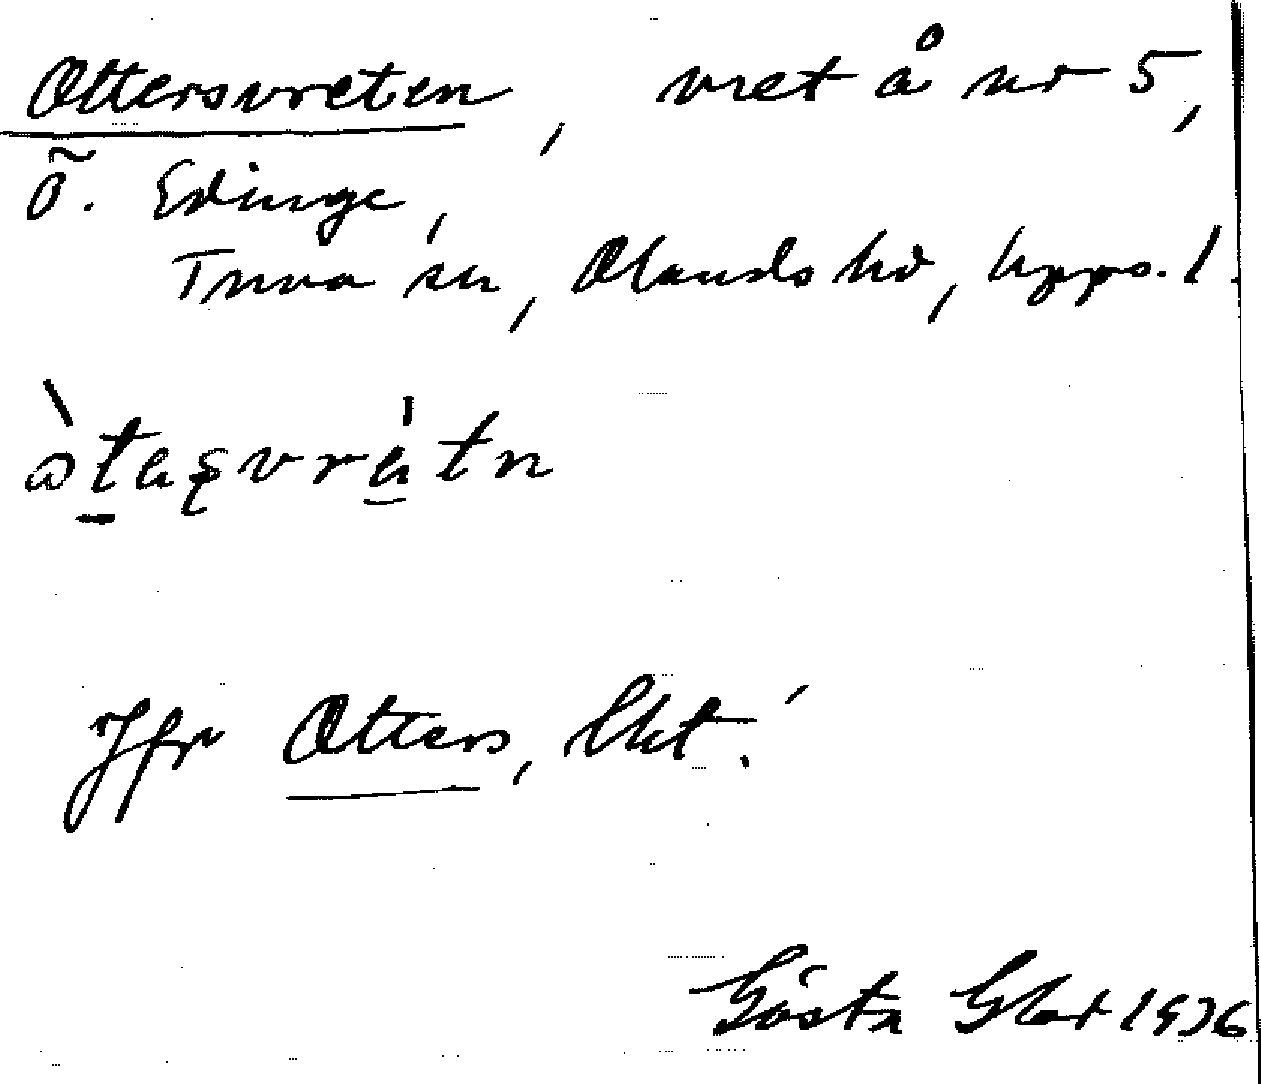 Ottersvreten, vret å nr 5,
Ö. Edinge,
Tuna sn, Olands hd, Upps. l.
Jfr Otters, lkt.
Gösta Gbt 1936